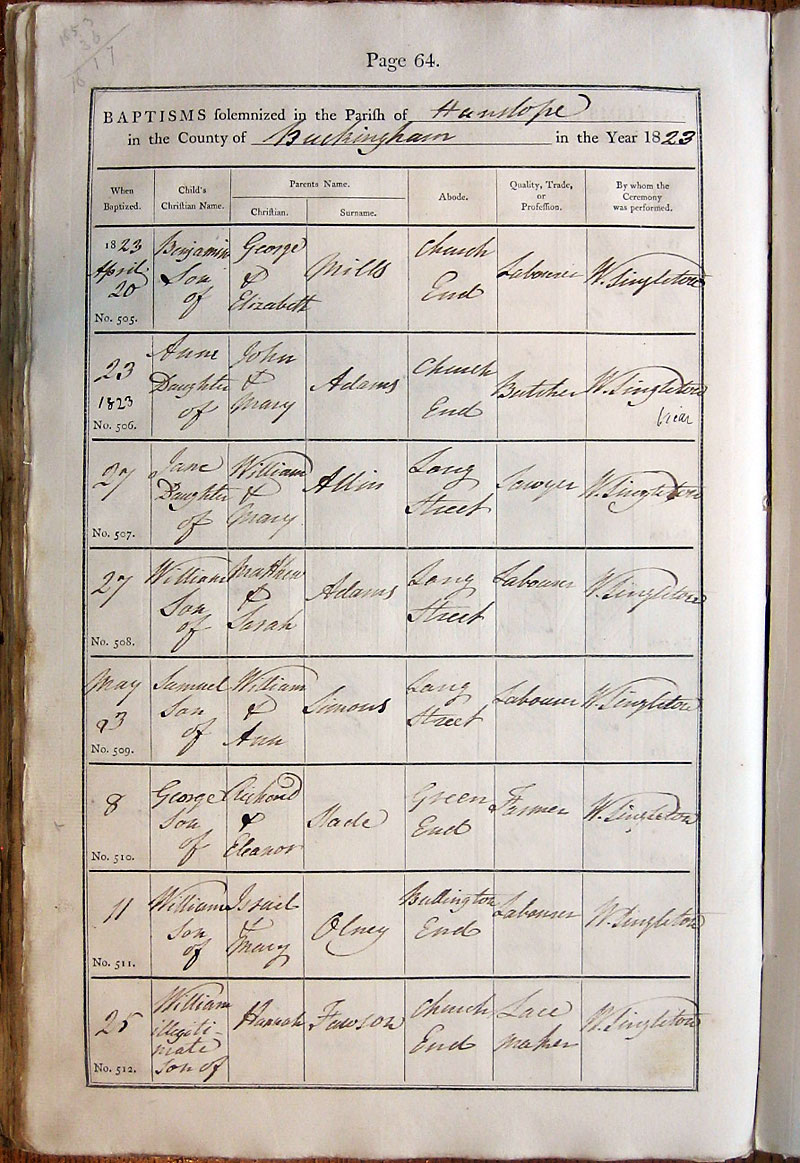 Page 64.
BAPTISMS solemnized in the Parish of Hanslope
in the County of Buckingham in the Year 1823
When Baptized.
Child's Christian Name.
Parents Name.
Christian.
Surname.
Abode.
Quality, Trade, or Profession.
By whom the Ceremony was performed.
1823 April 20 No. 505.
Benjamin Son of
George & Elizabeth
Mills
Church End
Labourer
W. Singleton
23 1823 No. 506.
Anne Daughter of
John & Mary
Adams
Church End
Butcher
W. Singleton Vicar
27 No. 507.
Jane Daughter of
William & Mary
Allin
Long Street
Sawyer
W. Singleton
27 No. 508.
William Son of
Matthew & Sarah
Adams
Long Street
Labourer
W. Singleton
May 3 No. 509.
Samuel Son of
William & Ann
Simons
Long Street
Labourer
W. Singleton
8 No. 510.
George Son of
Richard & Eleanor
Slade
Green End
Farmer
W. Singleton
11 No. 511.
William Son of
Israel & Mary
Olney
Bullington End
Labourer
W. Singleton
25 No. 512.
William illegiti-mate son of
Hannah
Fawson
Church End
Lace maker
W. Singleton